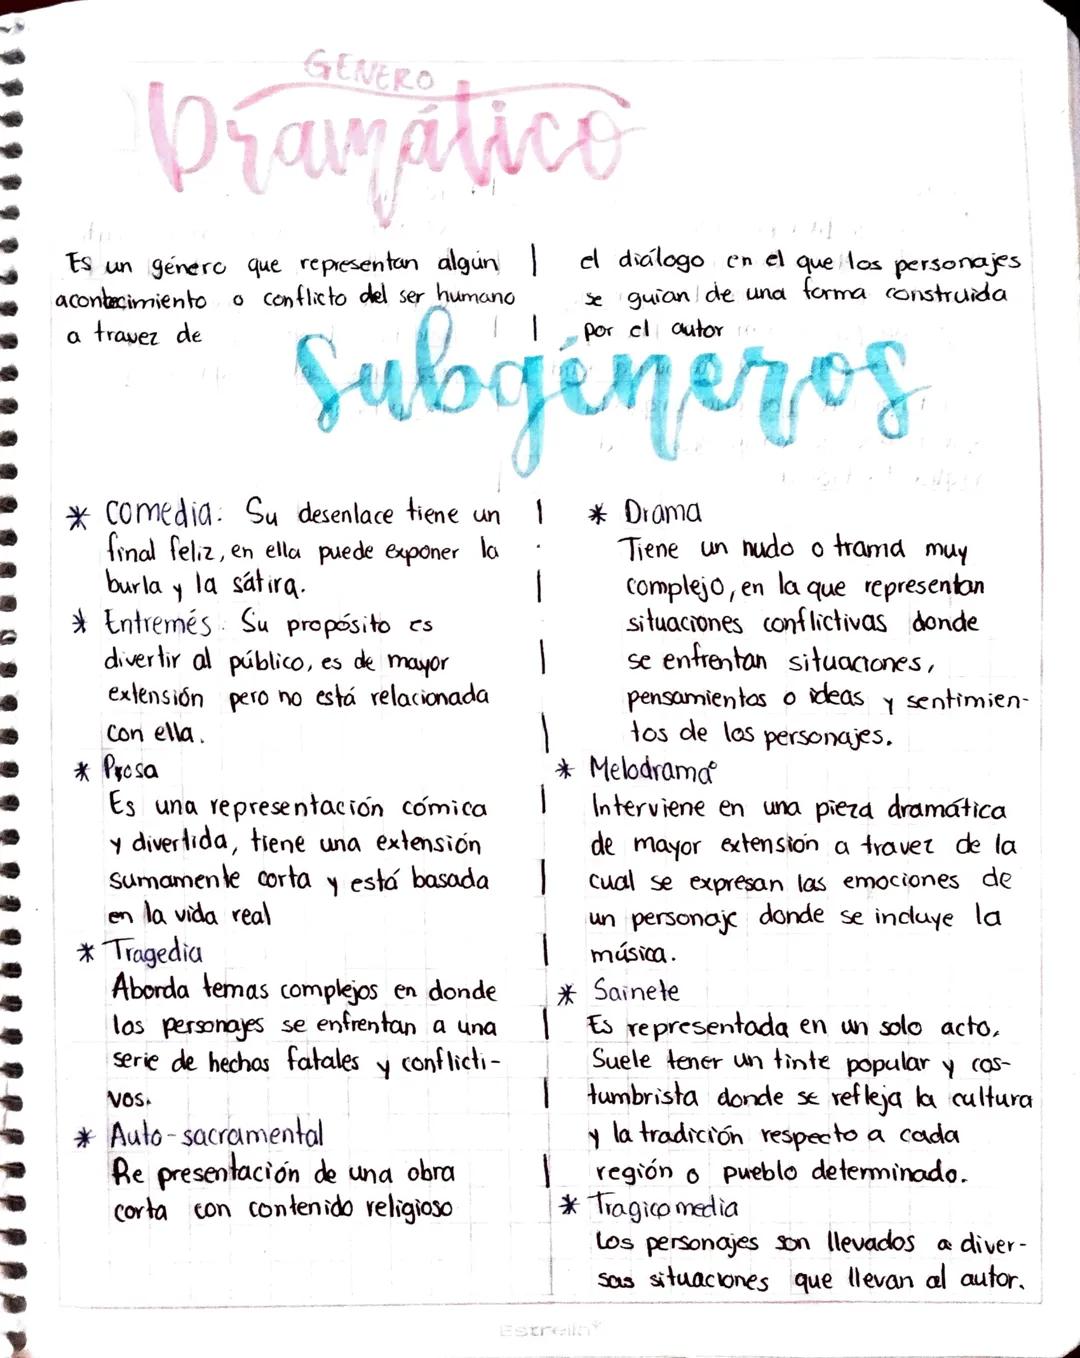 GENERO
Dramático
Es un género que representan algún
acontecimiento o conflicto del ser humano
a travez de
el diálogo en el que los personajes
se guian de una forma construida
por el autor
Subgéneros
* Comedia: Su desenlace tiene un
final feliz, en ella puede exponer la
burla y la sátira.
* Entremés: Su propósito es
divertir al público, es de mayor
extensión pero no está relacionada
con ella.
* Prosa
Es una representación cómica
y divertida, tiene una extensión
sumamente corta y está basada
en la vida real
* Tragedia
Aborda temas complejos en donde
los personajes se enfrentan a una
serie de hechos fatales y conflicti-
vos.
* Auto-sacramental
Representación de una obra
corta con contenido religioso
* Drama
Tiene un nudo o trama muy
complejo, en la que representan
situaciones conflictivas donde
se enfrentan situaciones,
pensamientos o ideas y sentimien-
tos de los personajes.
* Melodrama
Interviene en una pieza dramática
de mayor extensión a travez de la
cual se expresan las emociones de
un personaje donde se incluye la
música.
* Sainete
Es representada en un solo acto,
Suele tener un tinte popular y cos-
tumbrista donde se refleja la cultura
y la tradición respecto a cada
región o pueblo determinado.
* Tragicomedia
Los personajes son llevados a diver-
sas situaciones que llevan al autor.
Estrella